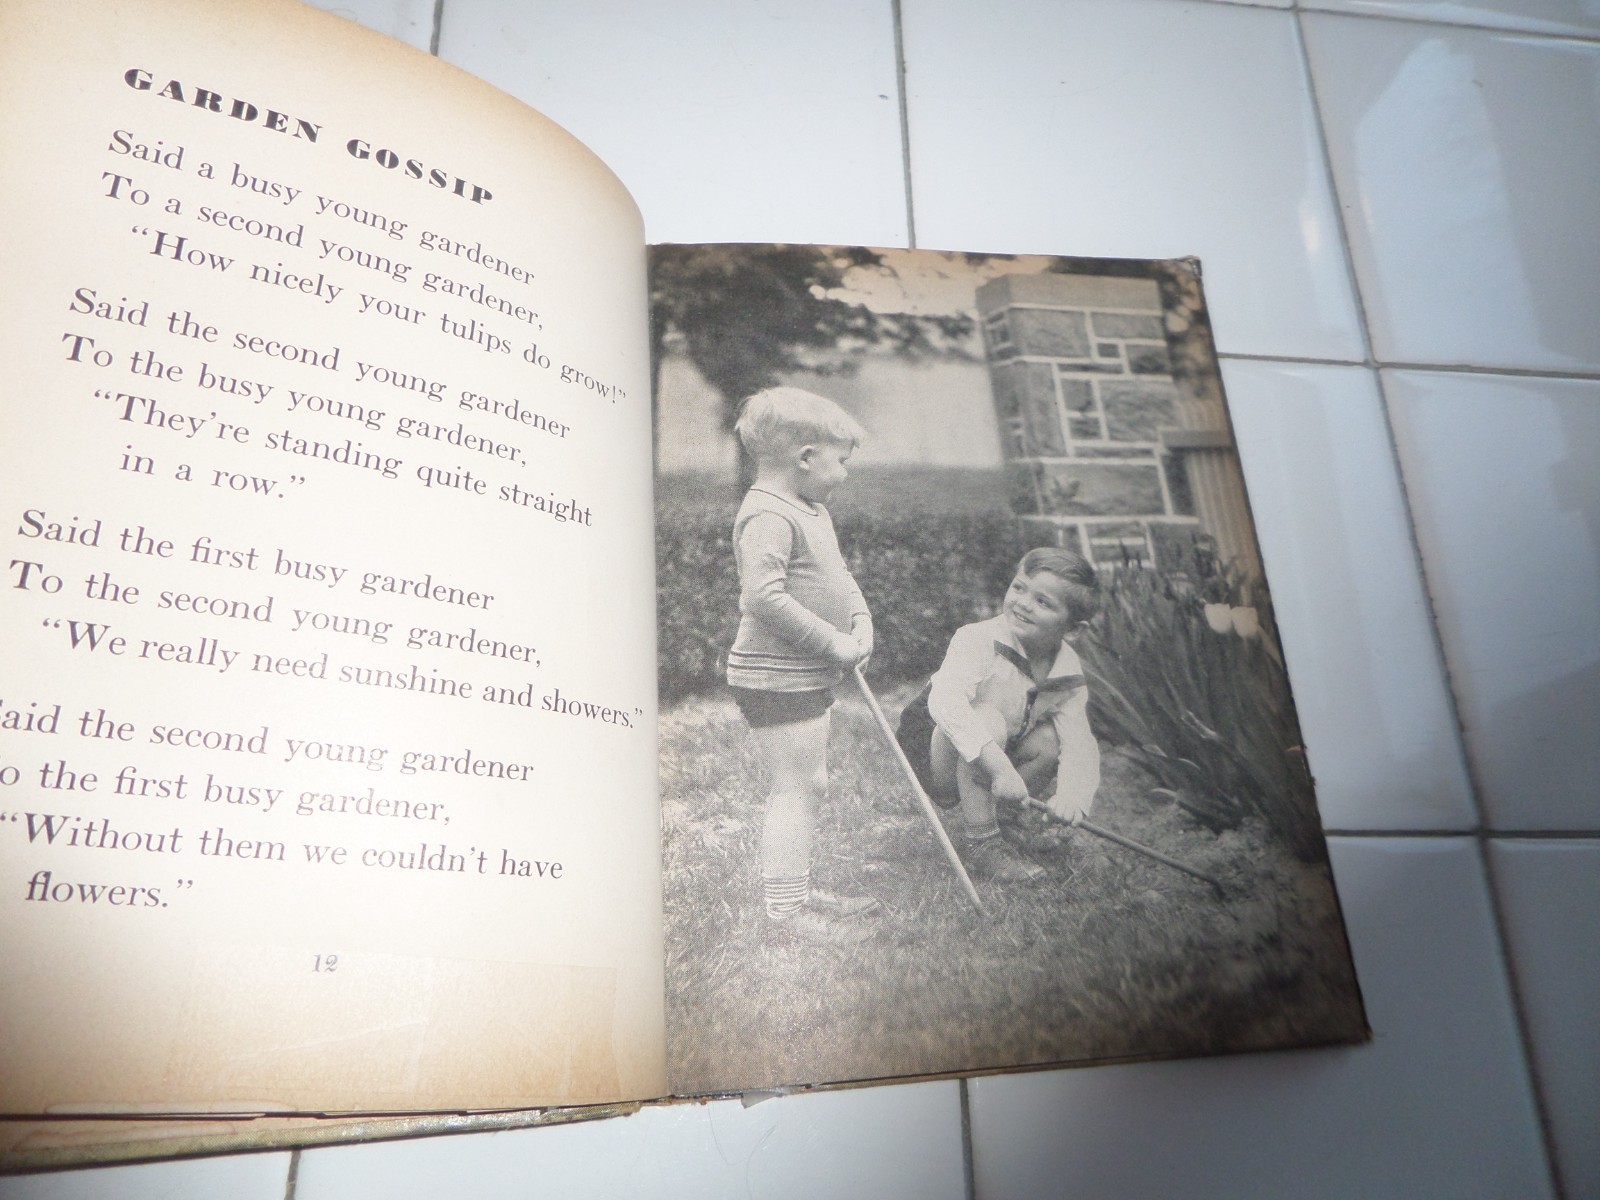 GARDEN GOSSIP
Said a busy young gardener
To a second young gardener,
“How nicely your tulips do grow!”
Said the second young gardener
To the busy young gardener,
“They’re standing quite straight
in a row.”
Said the first busy gardener
To the second young gardener,
“We really need sunshine and showers.”
Said the second young gardener
To the first busy gardener,
“Without them we couldn’t have
flowers.”
12